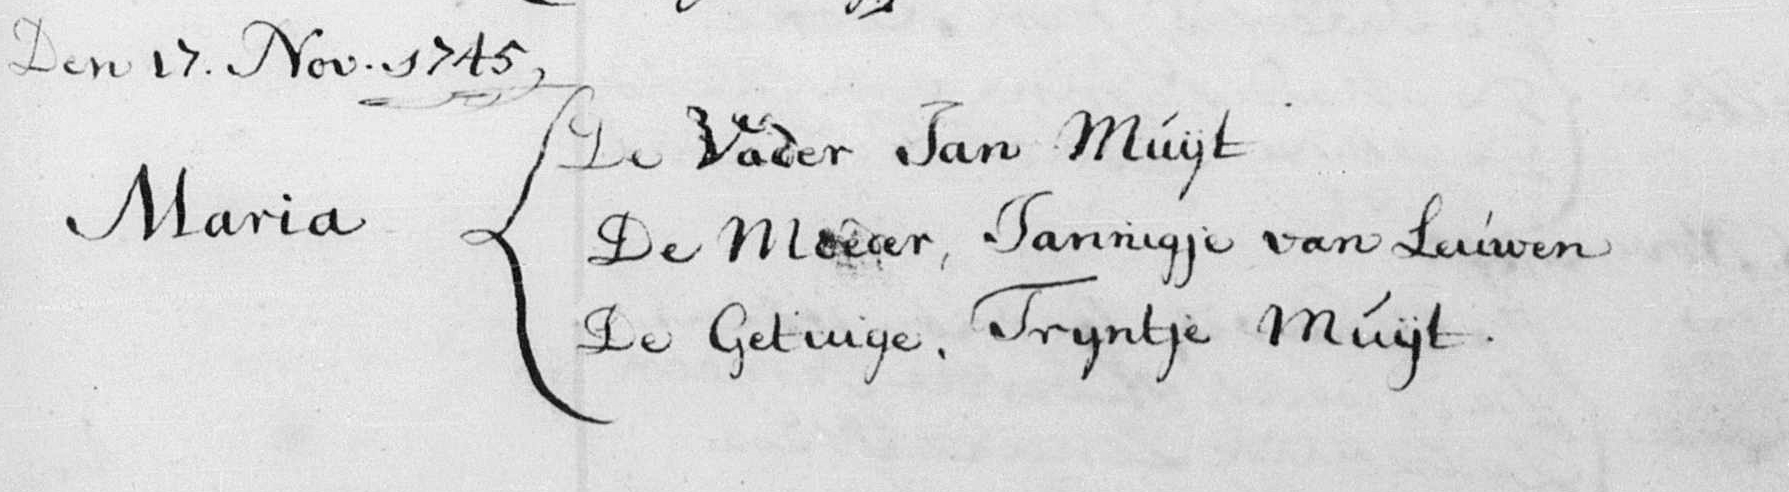 Den 17. Nov. 1745,
Maria
De Vader Jan Múÿt
De Moeder, Jannigje van Leúwen
De Getuige, Tryntje Múÿt.